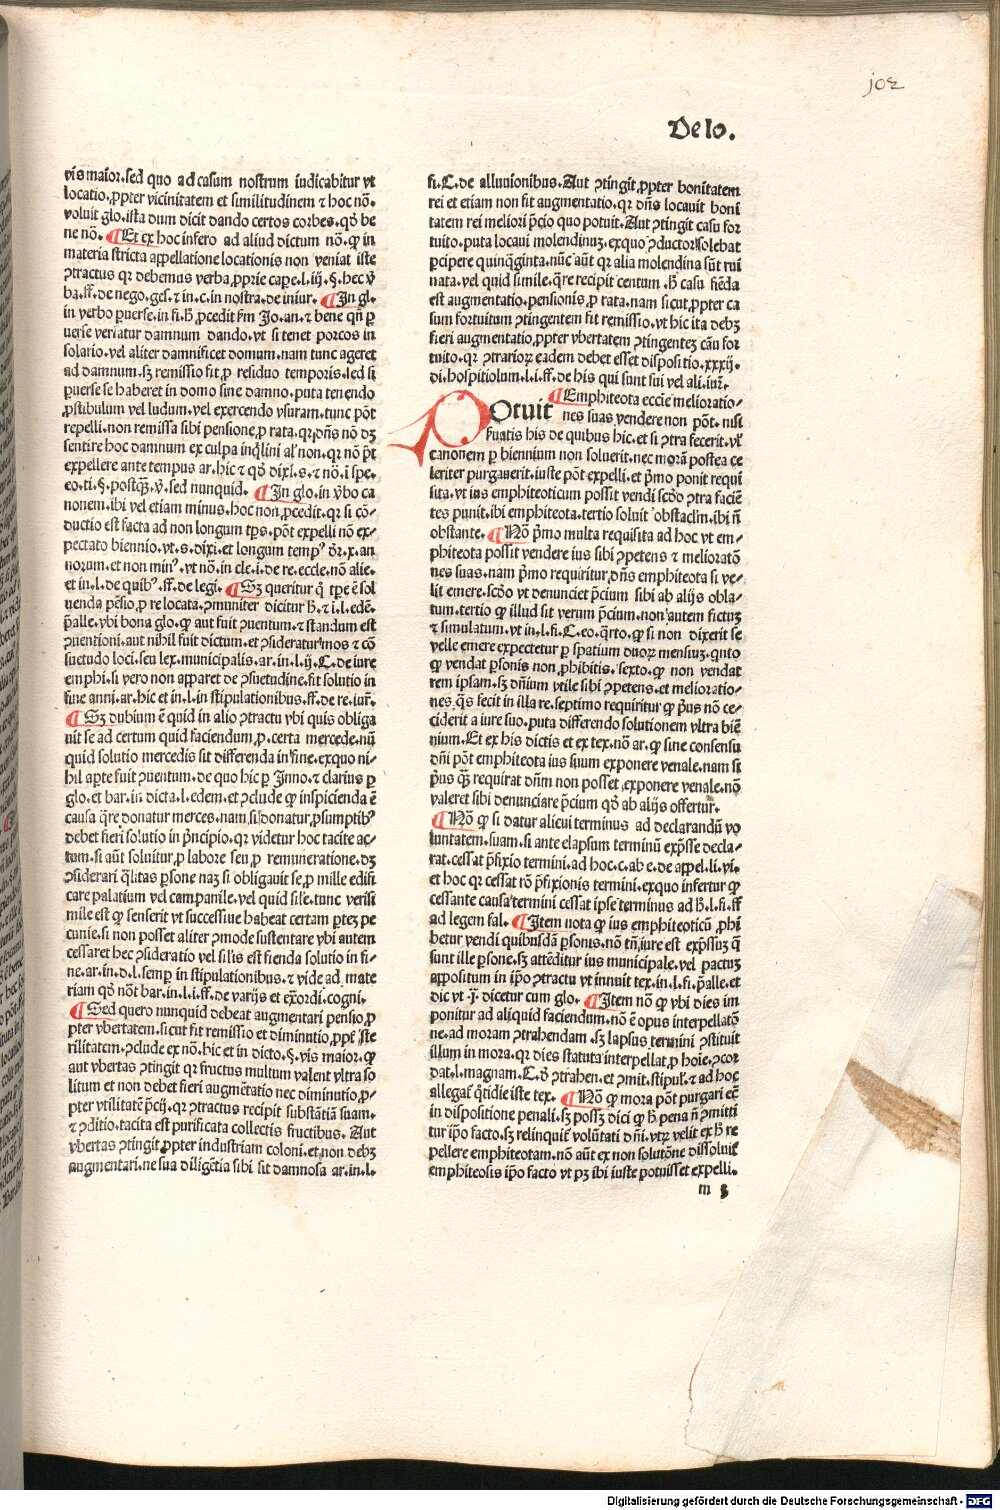 102
De lo.
vis maior. sed quo ad casum nostrum iudicabitur vt
locatio. ꝓpter vicinitatem et similitudinem ⁊ hoc nō.
voluit glo. ista dum dicit dando certos corbes. qḋ be
ne nō. ¶ Et ex hoc infero ad aliud dictum nō. ꝙ in
materia stricta appellatione locationis non veniat iste
ꝯtractus qꝛ debemus verba ꝓprie cape. l. iij. §. hec v̄
ba. ff. de nego. ges. ⁊ in. c. in nostra. de iniur. ¶ In gl.
in verbo ꝑuerse. in fi. h̄ ꝓcedit ẜm Jo. an. ⁊ bene qn̄ ꝑ
uerse versatur damnum dando. vt si tenet porcos in
solario. vel aliter damnificet domum. nam tunc ageret
ad damnum. sꝫ remissio fit ꝓ residuo temporis. sed si
ꝑuerse se haberet in domo sine damno. puta tenendo
ꝓstibulum vel ludum. vel exercendo vsuram. tunc pōt
repelli. non remissa sibi pensione. ꝓ rata. qꝛ dn̄s nō dꝫ
sentire hoc damnum ex culpa inq̄lini al' non. qꝛ nō pōt
expellere ante tempus ar. hic ⁊ qḋ dixi. s. ⁊ nō. ī spe.
eo. ti. §. postqꝫ. v̄. sed nunquid. ¶ In glo. in v̄bo ca
nonem. ibi vel etiam minus. hoc non ꝓcedit. qꝛ si cō-
ductio est facta ad non longum tꝑs. pōt expelli nō ex-
pectato biennio. vt. s. dixi. et longum tempꝰ dr̄. x. an
norum. et non minꝰ. vt nō. in cle. i. de re. eccle. nō alie.
et in. l. de quibꝰ. ff. de legi. ¶ Sꝫ queritur q̄ tp̄e ē sol
uenda pēsio. ꝓ re locata. ꝯmuniter dicitur h̄. ⁊ i. l. edē.
p̄alle. vbi bona glo. ꝙ aut fuit ꝯuentum. ⁊ standum est
ꝯuentioni. aut nihil fuit dictum. et ꝯsideratur mos ⁊ cō
suetudo loci. seu lex municipalis. ar. in. l. ij. C. de iure
emphi. si vero non apparet de ꝯsuetudine. fit solutio in
fine anni. ar. hic et in. l. in stipulationibus. ff. de re. iur̄.
¶ Sꝫ dubium ē quid in alio ꝯtractu vbi quis obliga
uit se ad certum quid faciendum. ꝓ. certa mercede. nū
quid solutio mercedis sit differenda in fine. exquo ni-
hil aꝑte fuit ꝯuentum. de quo hic ꝑ Inno. ⁊ clarius ꝑ
glo. et bar. in dicta. l. edem. et ꝯclude ꝙ inspicienda ē
causa q̄re donatur merces. nam si donatur. ꝓ sumptibꝰ
debet fieri solutio in p̄ncipio. qꝛ videtur hoc tacite ac-
tum. si aūt soluitur. ꝓ labore seu ꝓ remuneratione. dꝫ
ꝯsiderari q̄litas ꝑsone naꝫ si obligauit se. ꝓ mille edifi
care palatium vel campanile. vel quid sile. tunc verisi
mile est ꝙ senserit vt successiue habeat certam ptez pe
cunie. si non posset aliter ꝯmode sustentare vbi autem
cessaret hec ꝯsideratio vel silis est fienda solutio in fi-
ne. ar. in. d. l. semꝑ in stipulationibus. ⁊ vide ad mate
riam qḋ not̄ bar. in. l. i. ff. de varijs et ex̄ordi. cogni.
¶ Sed quero nunquid debeat augmentari pensio ꝓ
pter vbertatem. sicut fit remissio et diminutio. ꝓpt̄ ste
rilitatem. ꝯclude ex nō. hic et in dicto. §. vis maior. ꝙ
aut vbertas ꝯtingit qꝛ fructus multum valent vltra so
litum et non debet fieri augmētatio nec diminutio. ꝓ-
pter vtilitatē p̄cij. qꝛ ꝯtractus recipit substātiā suam.
⁊ ꝯditio. tacita est purificata collectis fructibus. Aut
vbertas ꝯtingit. ꝓpter industriam coloni. et non debꝫ
augmentari. ne sua diligētia sibi sit damnosa ar. in. l.
fi. C. de alluuionibus. Aut ꝯtingit. ꝓpter bonitatem
rei et etiam non fit augmentatio. qꝛ dn̄s locauit boni
tatem rei meliori p̄cio quo potuit. Aut ꝯtingit casu for
tuito. puta locaui molendinuꝫ. exquo ꝯductor solebat
ꝑcipere quinq̄ginta. nūc aūt qꝛ alia molendina sūt rui
nata. vel quid simile. q̄re recipit centum. h̄ casu fiēda
est augmentatio. pensionis. ꝓ rata. nam sicut. ꝓpter ca
sum fortuitum ꝯtingentem fit remissio. vt hic ita debꝫ
fieri augmentatio. ꝓpter vbertatem ꝯtingenteꝫ cāu for
tuito. qꝛ ꝯtrarioꝝ eadem debet esset dispositio. xxxij.
di. hospitiolum. l. i. ff. de his qui sunt sui vel ali. iur̄.
Potuit ¶ Emphiteota eccīe melioratio-
nes suas vendere non pōt. nisi
ẜuatis his de quibus hic. et si ꝯtra fecerit. vl'
canonem ꝑ biennium non soluerit. nec morā postea ce
leriter purgauerit. iuste pōt expelli. et p̄mo ponit requi
sita. vt ius emphiteoticum possit vendi scḋo ꝯtra faciē
tes punit. ibi emphiteota. tertio soluit obstaclm̄. ibi n̄
obstante. ¶ Nō p̄mo multa requisita ad hoc vt em-
phiteota possit vendere ius sibi ꝯpetens ⁊ melioratō
nes suas. nam p̄mo requiritur. dn̄s emphiteota si ve-
lit emere. scḋo vt denunciet p̄cium sibi ab alijs obla-
tum. tertio ꝙ illud sit verum p̄cium. non autem fictuꝫ
⁊ simulatum. vt in. l. fi. C. eo. q̄rto. ꝙ si non dixerit se
velle emere expectetur ꝑ spatium duoꝝ mensiuꝫ. qnto
ꝙ vendat ꝑsonis non ꝓhibitis. sexto. ꝙ non vendat
rem ipsam. sꝫ dn̄ium vtile sibi ꝯpetens. et melioratio-
nes. q̄s fecit in illa re. septimo requiritur ꝙ p̄us nō ce-
ciderit a iure suo. puta differendo solutionem vltra biē
nium. Et ex his dictis et ex tex. nō ar. ꝙ sine consensu
dn̄i pōt emphiteota ius suum exponere venale. nam si
p̄us qꝫ requirat dn̄m non posset exponere venale. nō
valeret sibi denunciare p̄cium qḋ ab alijs offertur.
¶ Nō ꝙ si datur alicui terminus ad declarandū vo
luntatem. suam. si ante elapsum terminū exp̄sse decla-
rat. cessat p̄fixio termini. ad hoc. c. ab e. de appel. li. vi.
et hoc qꝛ cessat rō p̄fixionis termini. exquo infertur ꝙ
cessante causa termini cessat ipse terminus ad h̄. l. fi. ff
ad legem fal. ¶ Item nota ꝙ ius emphiteoticū. ꝓhi
betur vendi quibusdā ꝑsonis. nō tn̄ iure est exp̄ssuꝫ q̄
sunt ille ꝑsone. sꝫ attēditur ius municipale. vel pactuꝫ
appositum in ip̄o ꝯtractu vt innuit tex. in. l. fi. p̄alle. et
dic vt. j. dicetur cum glo. ¶ Item nō ꝙ vbi dies im
ponitur ad aliquid faciendum. nō ē opus interpellatō
ne. ad moram ꝯtrahendam. sꝫ lapsus termini ꝯstituit
illum in mora. qꝛ dies statuta interpellat. ꝓ hoīe. ꝯcor
dat. l. magnam. C. ḋ ꝯtrahen. et ꝯmit. stipul'. ⁊ ad hoc
allegat̄ q̄tidie iste tex. ¶ Nō ꝙ mora pōt purgari ec̄
in dispositione penali. sꝫ possꝫ dici ꝙ h̄ pena n̄ ꝯmitti
tur ip̄o facto. sꝫ relinquit̄ volūtati dn̄i. vtꝝ velit ex h̄ re
pellere emphiteotam. nō aūt ex non solutōne dissoluit̄
emphiteosis ip̄o facto vt pꝫ ibi iuste potuisset expelli.
m 3
Digitalisierung gefördert durch die Deutsche Forschungsgemeinschaft - DFG